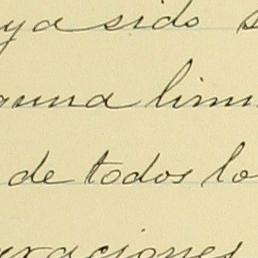 ya sido s
guna lim
de todos lo
raciones